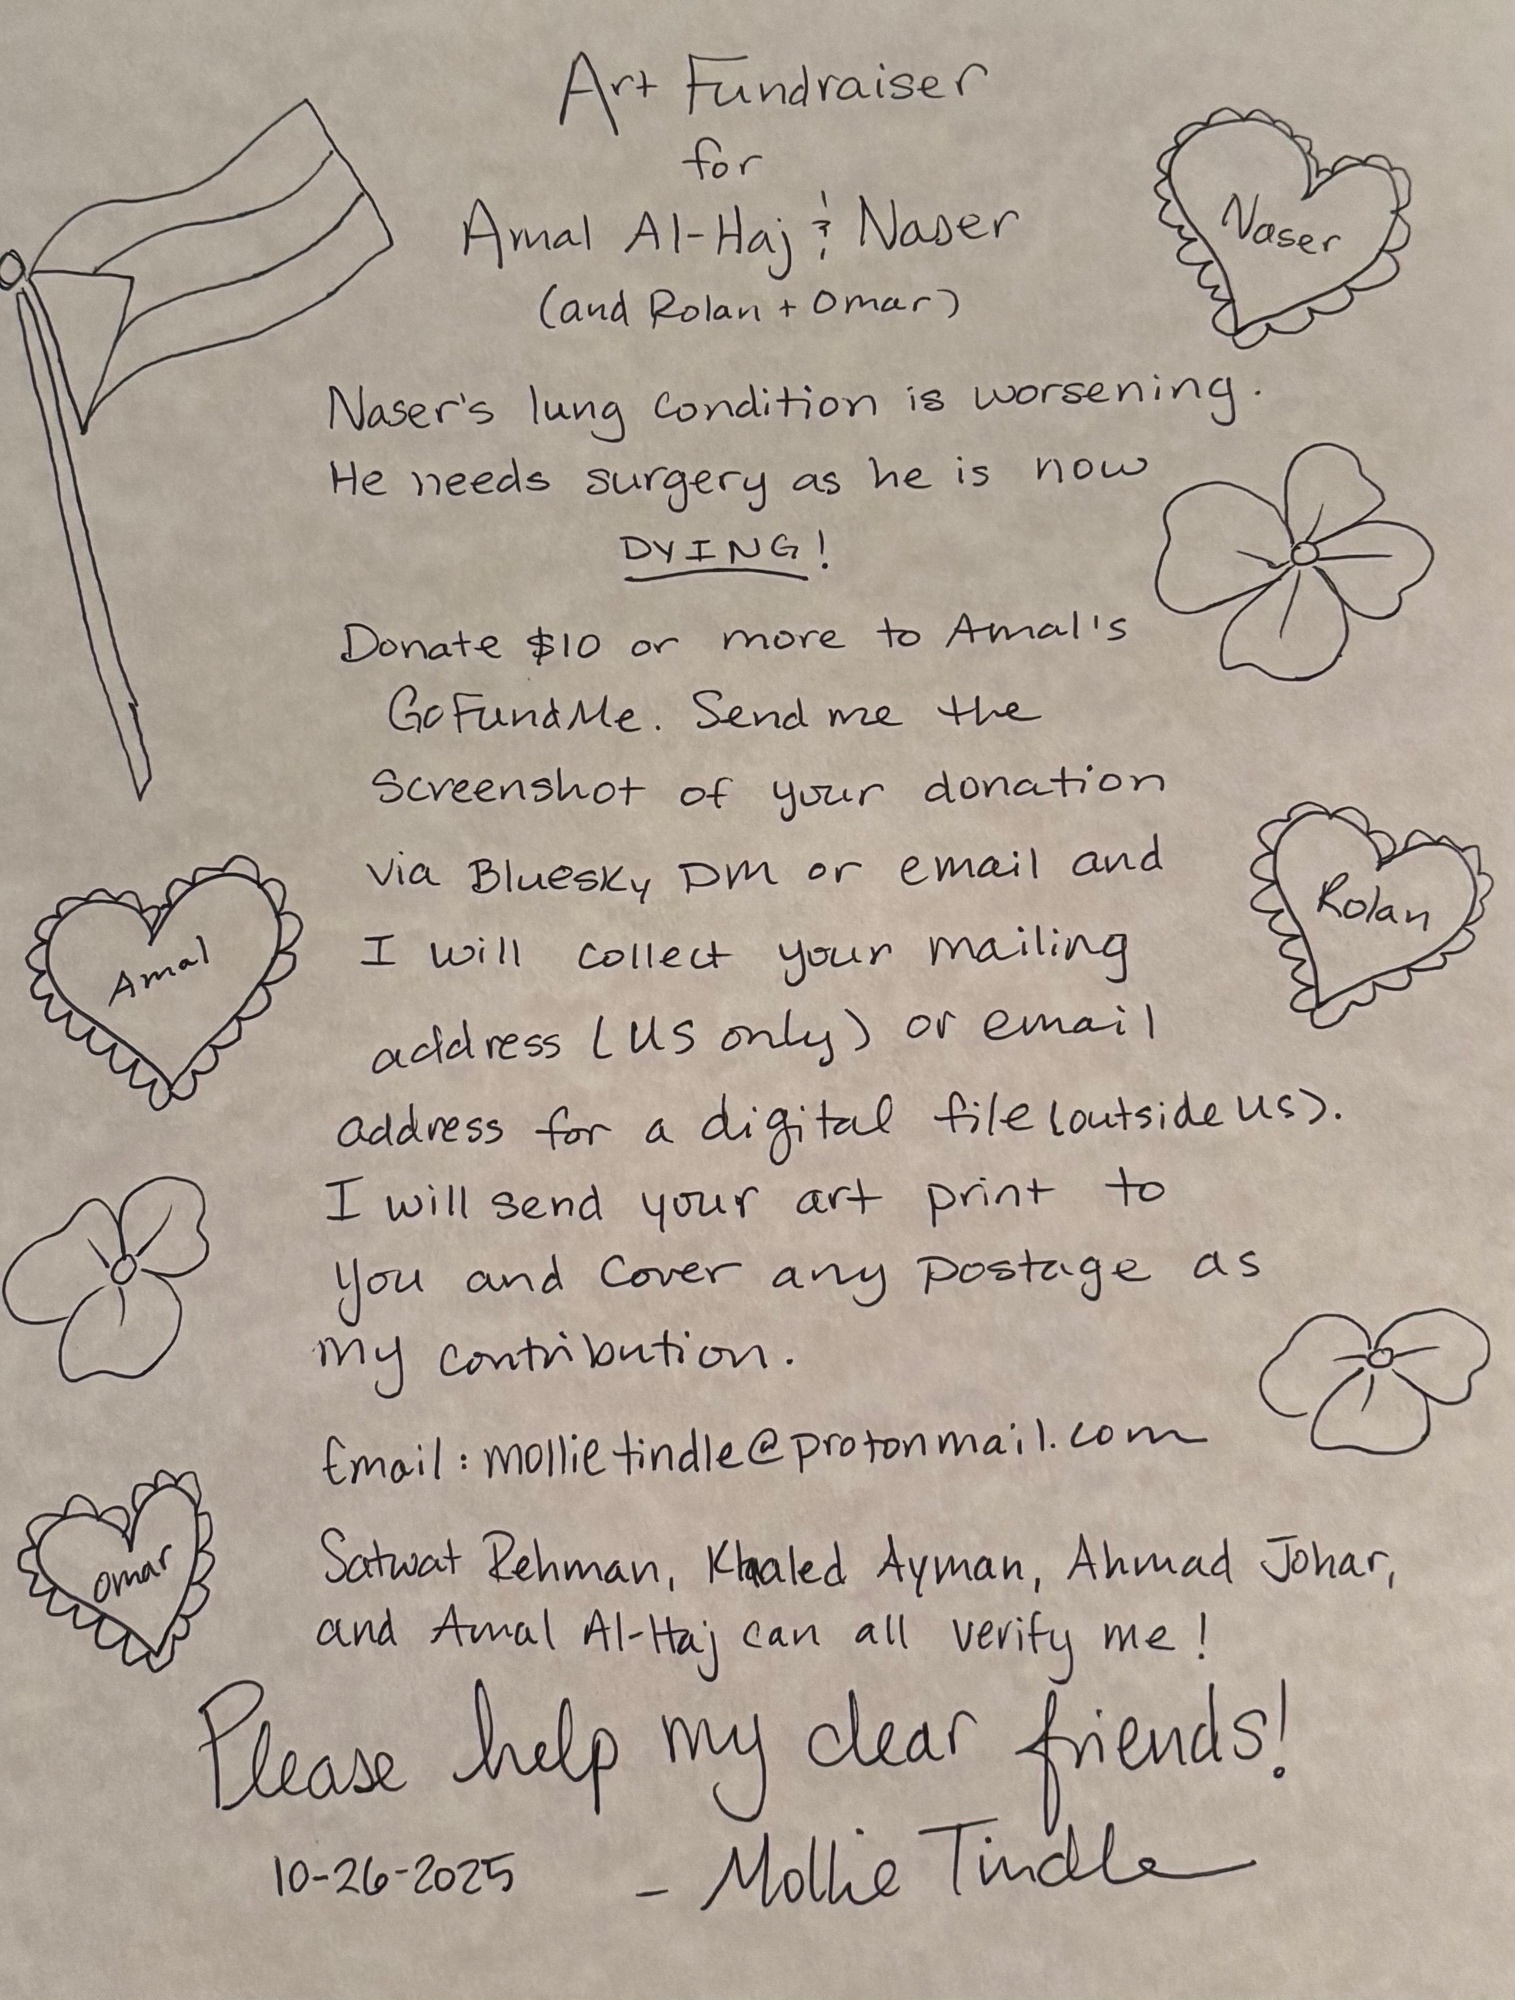 Art Fundraiser
for
Amal Al-Haj & Naser
(and Rolan + Omar)
Naser
Naser's lung condition is worsening.
He needs surgery as he is now
DYING!
Donate $10 or more to Amal's
GoFundMe. Send me the
screenshot of your donation
via Bluesky DM or email and
I will collect your mailing
address (US only) or email
address for a digital file (outside US).
I will send your art print to
you and cover any postage as
my contribution.
Amal
Rolan
Email: mollietindle@protonmail.com
Omar
Satwat Rehman, Khaled Ayman, Ahmad Johar,
and Amal Al-Haj can all verify me!
Please help my dear friends!
10-26-2025 - Mollie Tindle